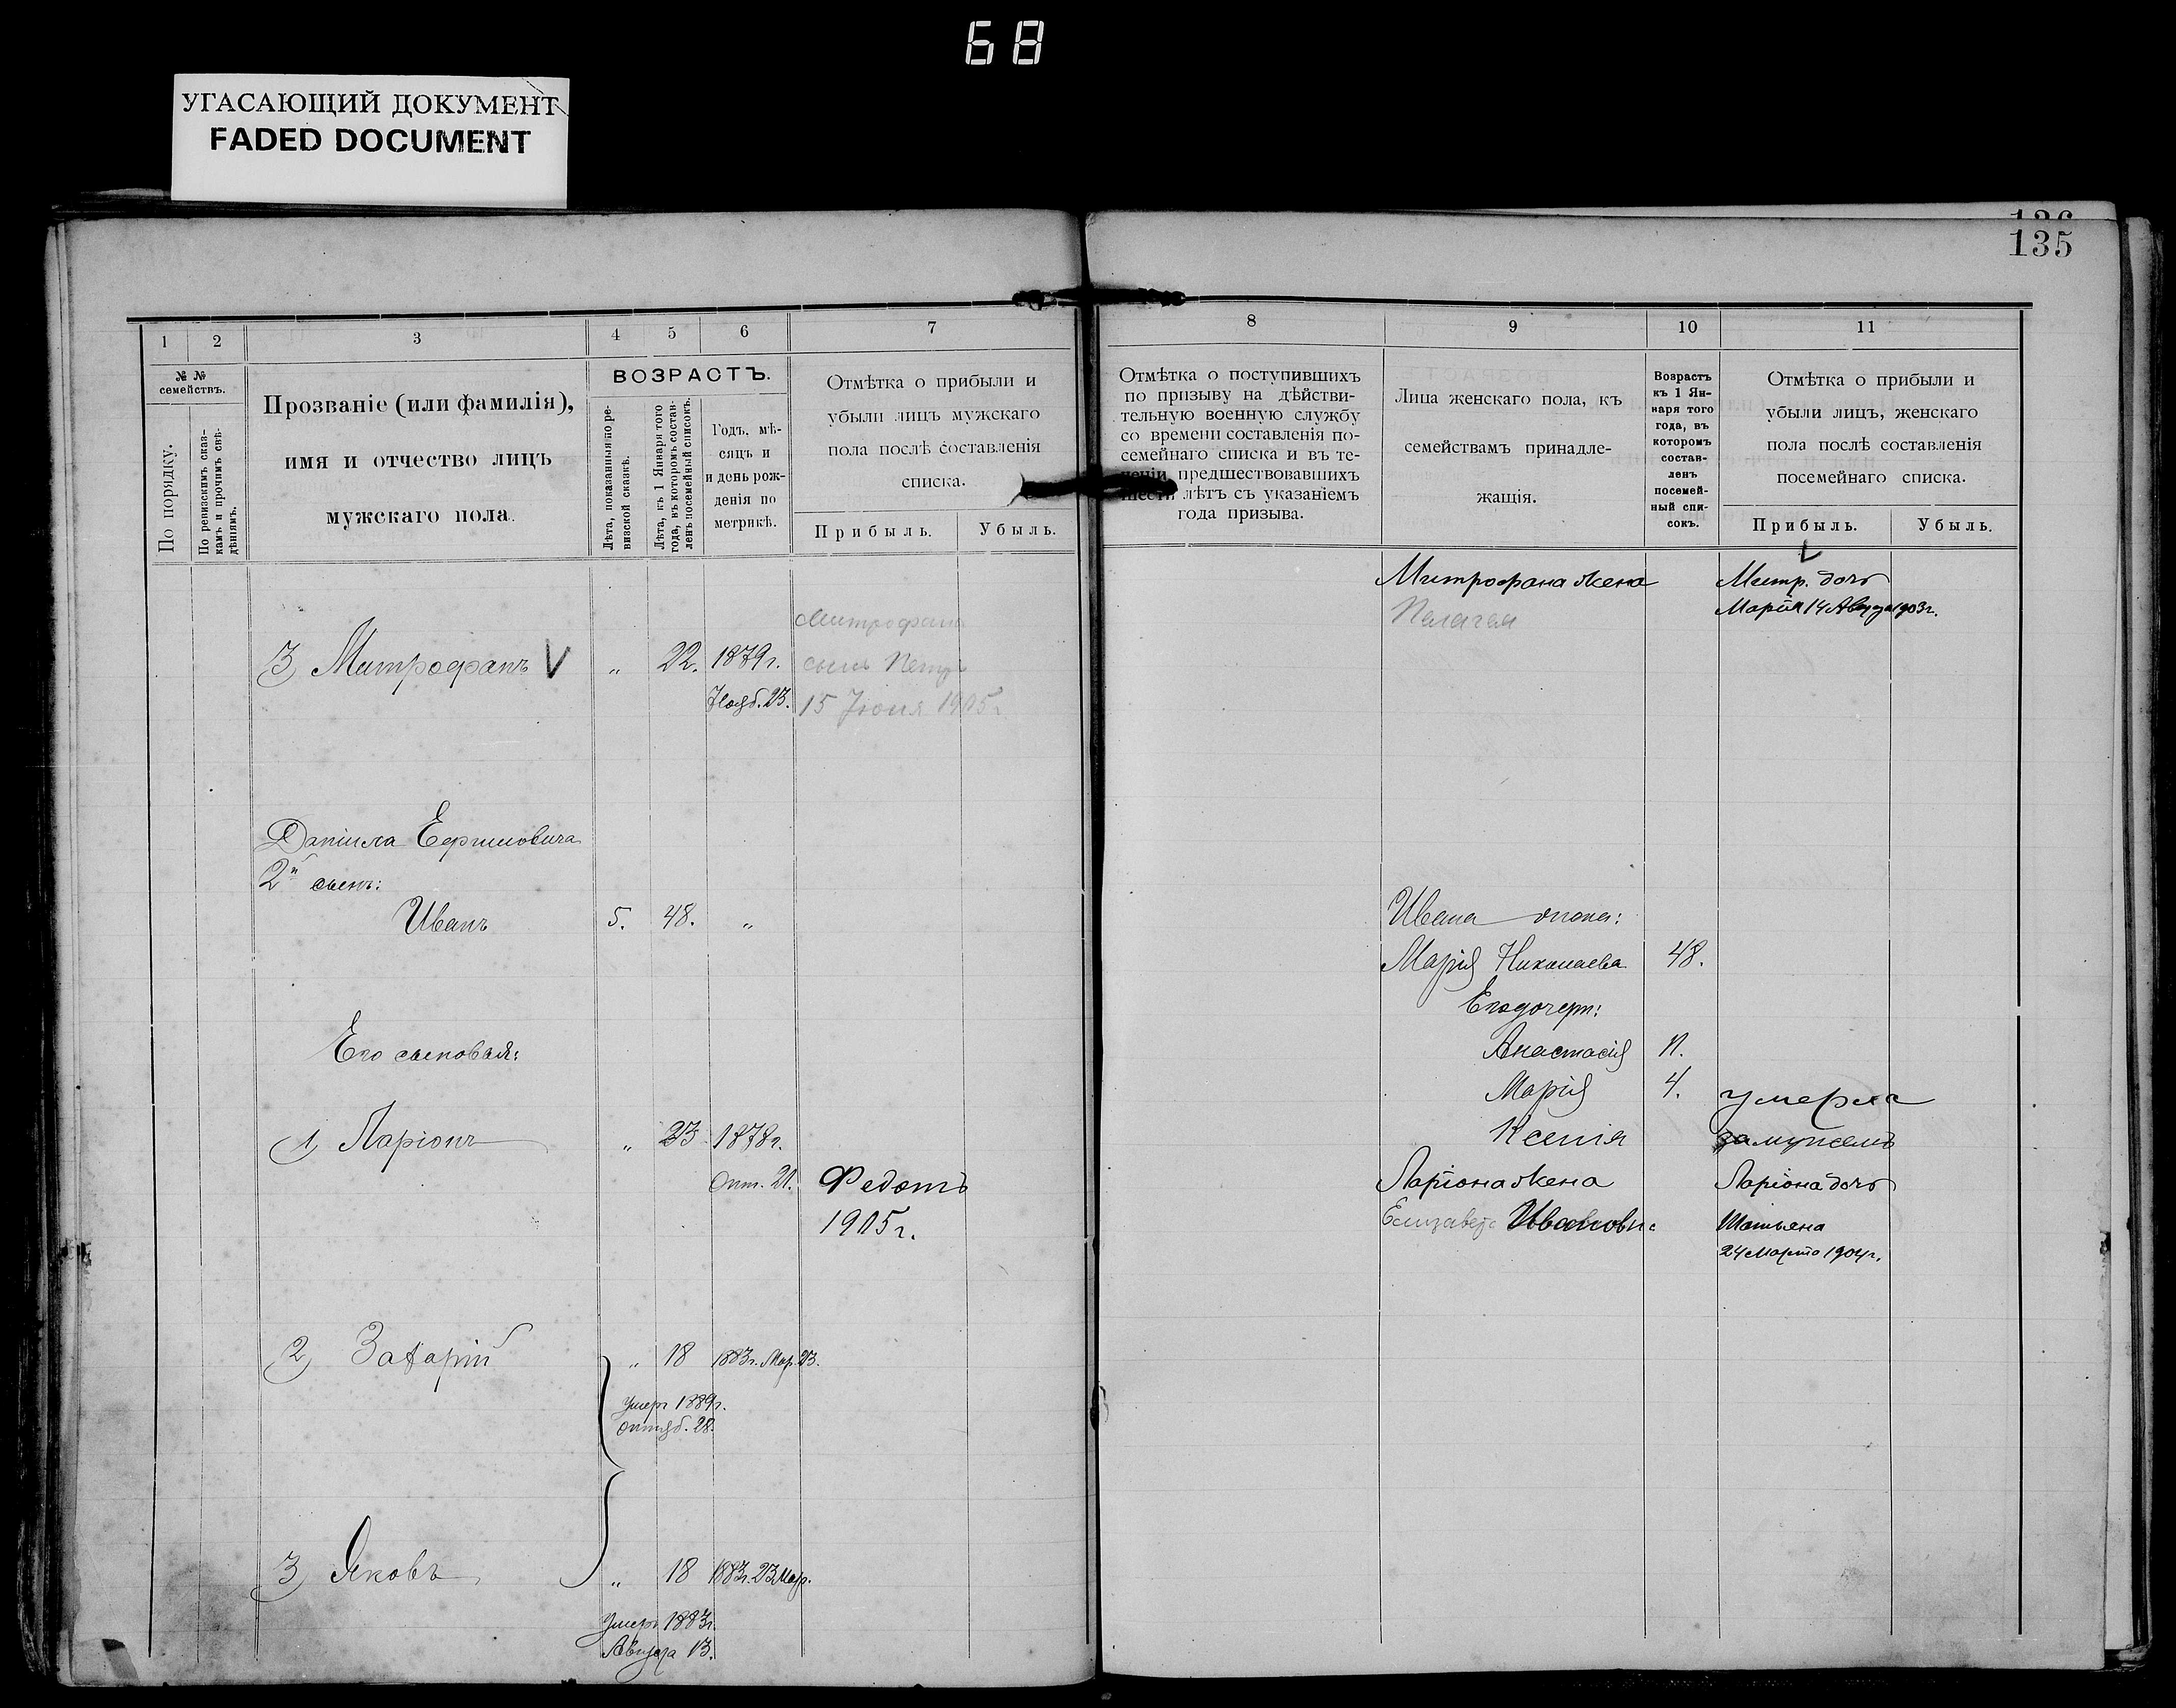 68
УГАСАЮЩИЙ ДОКУМЕНТ
FADED DOCUMENT
135
1
2
3
4
5
6
7
№ №
семействъ.
По порядку.
По ревизскимъ сказ-
камъ и прочимъ свѣ-
дѣніямъ.
Прозваніе (или фамилія),
имя и отчество лицъ
мужскаго пола.
ВОЗРАСТЪ.
Лѣта, показанныя по ре-
визской сказкѣ.
Лѣта, къ 1 Января того
года, въ которомъ состав-
ленъ посемейный списокъ.
Годъ, мѣ-
сяцъ и
и день рож-
денія по
метрикѣ.
Отмѣтка о прибыли и
убыли лицъ мужскаго
пола послѣ составленія
списка.
Прибыль.
Убыль.
3) Митрофанъ V „ 22. 1879г.
Нояб. 23.
Митрофана
сынъ Петръ
15 Іюня 1905г
Даніила Ефимовича
2й сынъ:
Иванъ 5. 48. „
Его сыновья:
1) Ларіонъ „ 23 1878г.
Окт. 21.
Федотъ
1905г.
2) Захарій „ 18 1883г. Мар. 23.
Умеръ 1889г.
октяб. 28.
3) Яковъ „ 18 1883г. 23 Мар.
Умеръ 1883г.
Августа 13.
8
9
10
11
Отмѣтка о поступившихъ
по призыву на дѣйстви-
тельную военную службу
со времени составленія по-
семейнаго списка и въ те-
ченіи предшествовавшихъ
шести лѣтъ съ указаніемъ
года призыва.
Лица женскаго пола, къ
семействамъ принадле-
жащія.
Возрастъ
къ 1 Ян-
варя того
года, въ
которомъ
состав-
ленъ
посемей-
ный спи-
сокъ.
Отмѣтка о прибыли и
убыли лицъ, женскаго
пола послѣ составленія
посемейнаго списка.
Прибыль.
Убыль.
V
Митрофана жена
Пелагея
Митр. дочь
Марія 14 Августа 1903г.
Ивана жена:
Марія Николаева 48.
Его дочери:
Анастасія 11.
Марія 4. умерла
Ксенія замужемъ
Ларіона жена
Елизавета Ивановна
Ларіона дочь
Татьяна
24 Марта 1904г.